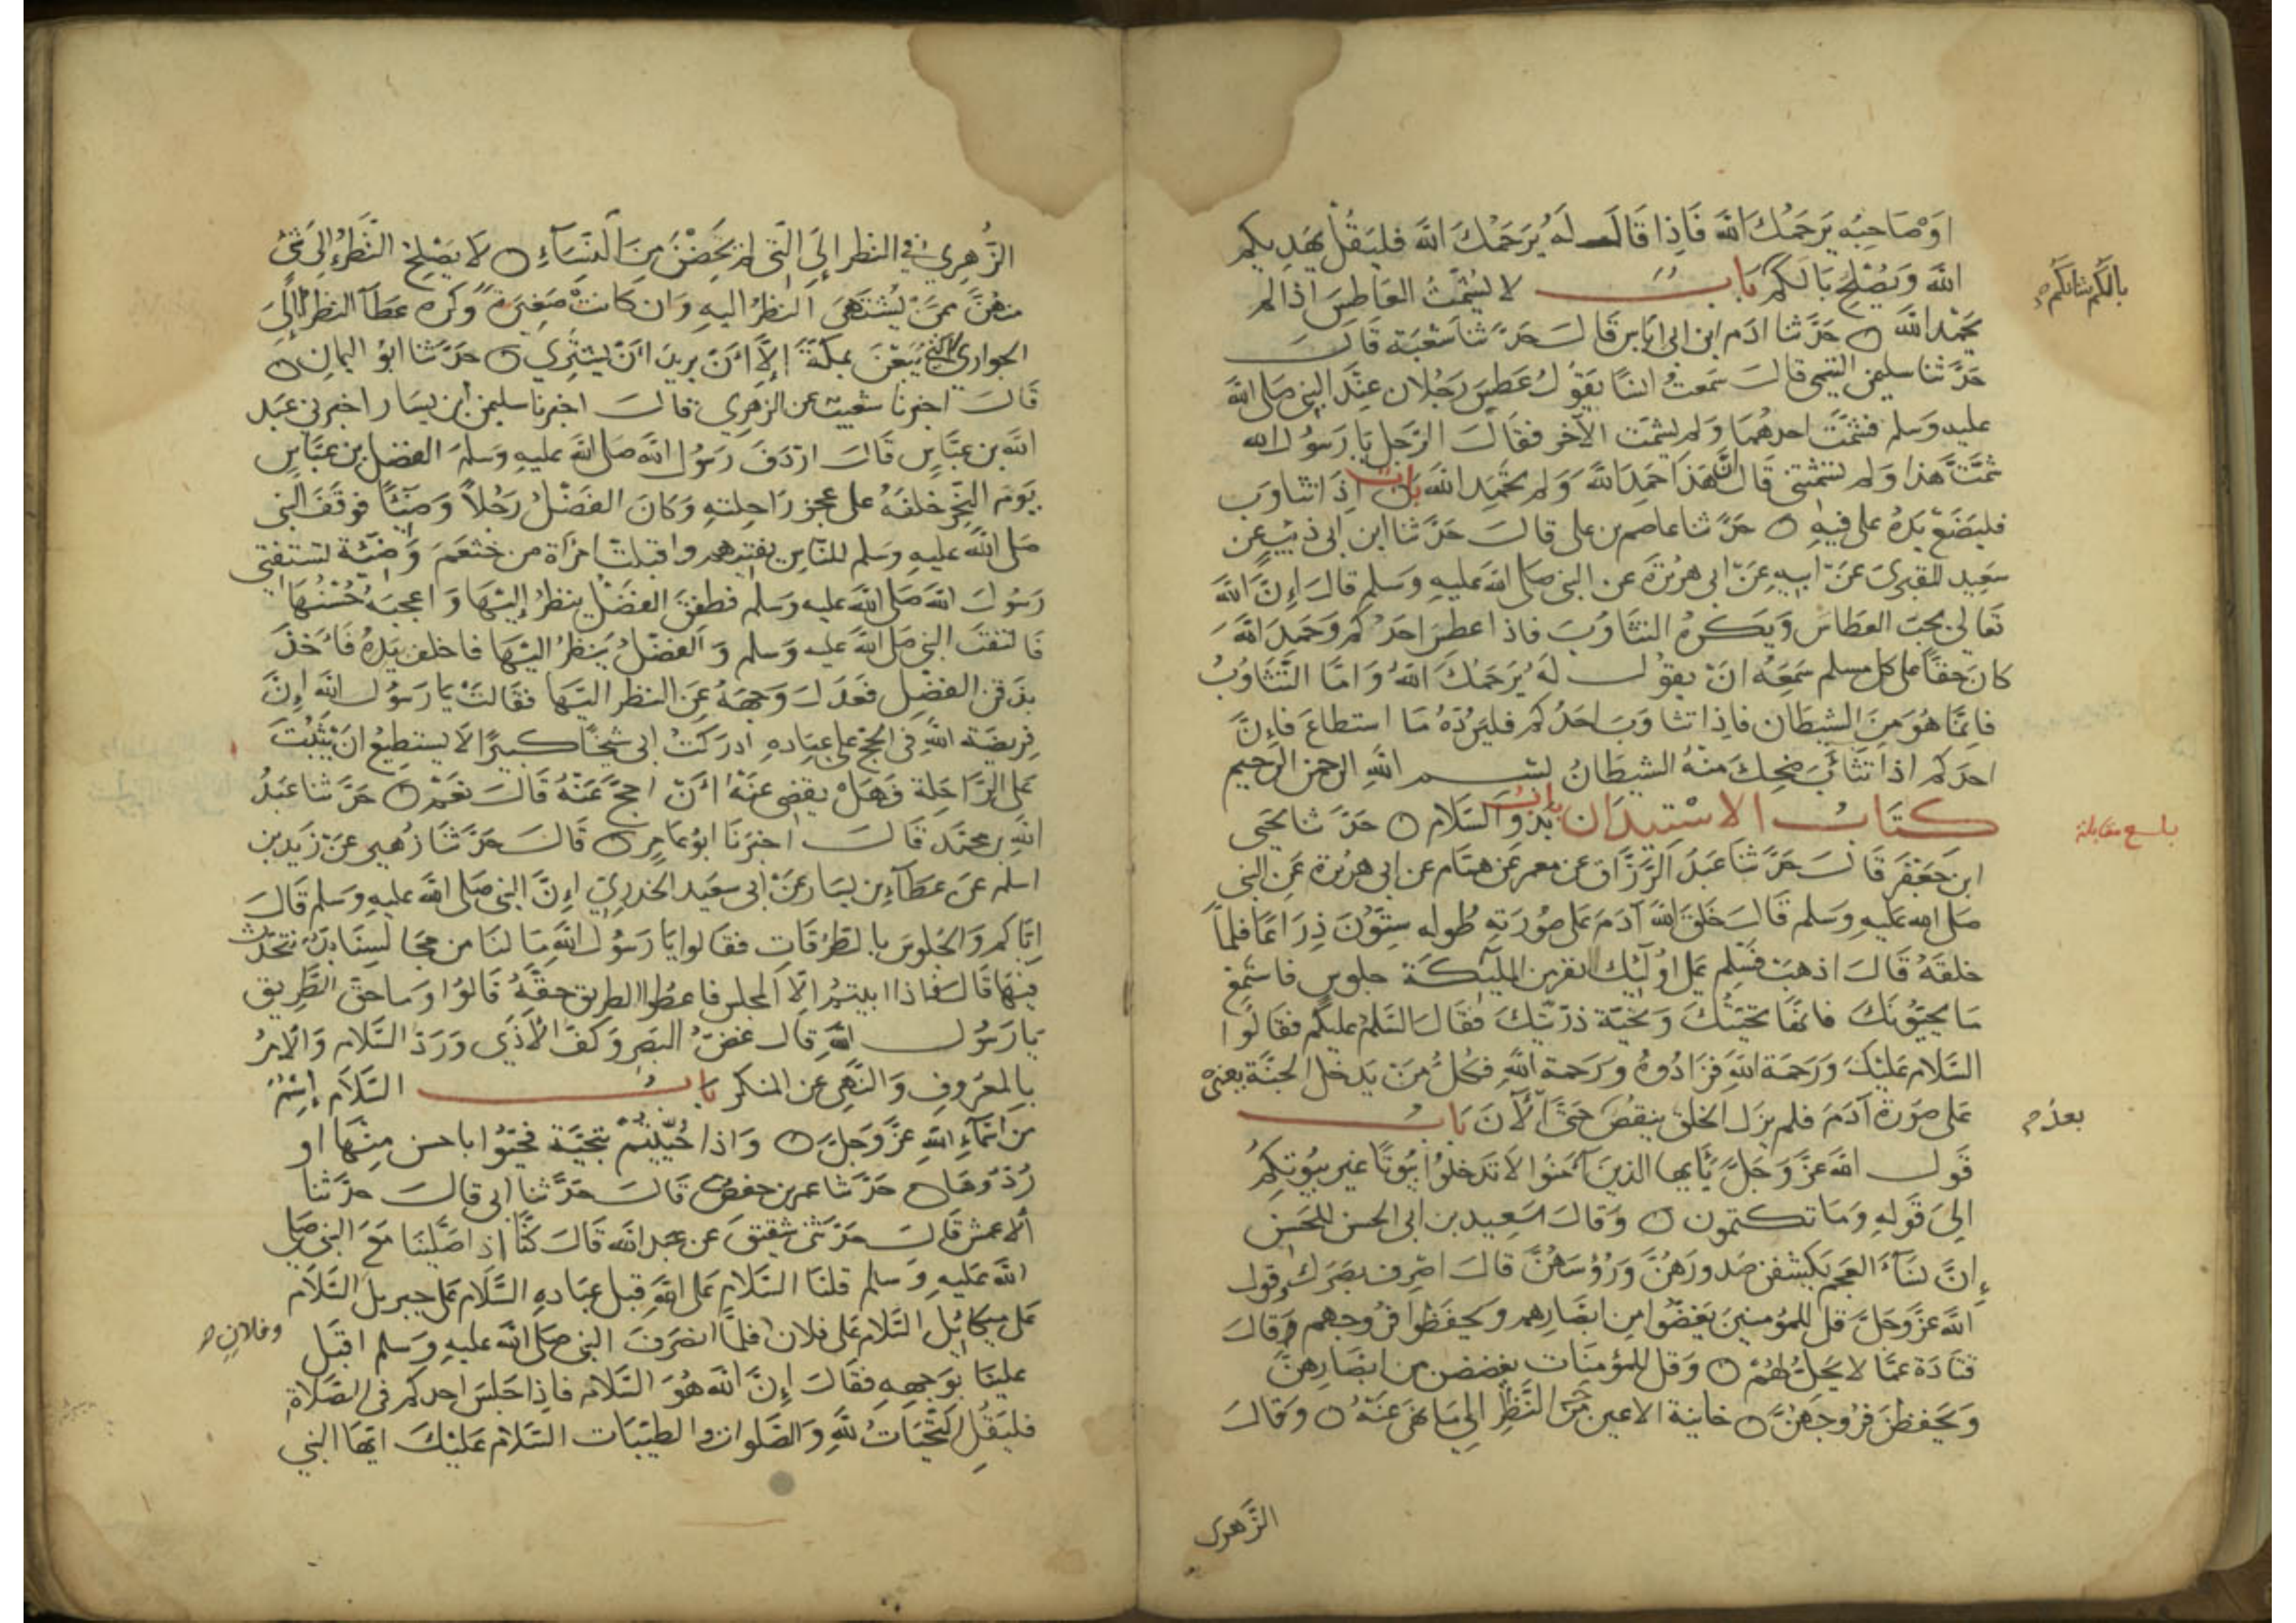 او صاحبه يرحمك الله فاذا قال له يرحمك الله فليقل يهديكم
الله ويصلح بالكم باب لا يشمت العاطس اذا لم
بالكم شانكم
يحمد الله حدثنا ادم ابن ابي اياس قال حدثنا شعبة قال
حدثنا سليمن التيمي قال سمعت انسا يقول عطس رجلان عند النبي صلى الله
عليه وسلم فشمت احدهما ولم يشمت الآخر فقال الرجل يا رسول الله
شمت هذا ولم تشمتني قال ان هذا حمد الله ولم يحمد الله باب اذا تثاوب
فليضع يده على فيه حدثنا عاصم بن علي قال حدثنا ابن ابي ذئب عن
سعيد المقبري عن ابيه عن ابي هريرة عن النبي صلى الله عليه وسلم قال ان الله
تعالى يحب العطاس ويكره التثاوب فاذا عطس احدكم وحمد الله
كان حقا على كل مسلم سمعه ان يقول له يرحمك الله واما التثاوب
فانما هو من الشيطان فاذا تثاوب احدكم فليرده ما استطاع فان
احدكم اذا تثائب ضحك منه الشيطان بسم الله الرحمن الرحيم
كتاب الاستيذان باب بدو السلام حدثنا يحيى
بلغ مقابلة
ابن جعفر قال حدثنا عبد الرزاق عن معمر عن همام عن ابي هريرة عن النبي
صلى الله عليه وسلم قال خلق الله آدم على صورته طوله ستون ذراعا فلما
خلقه قال اذهب فسلم على اوليك النفر من المليكة جلوس فاستمع
ما يحيونك فانها تحيتك وتحية ذريتك فقال السلم عليكم فقالوا
السلام عليك ورحمة الله فزادوه ورحمة الله فكل من يدخل الجنة يعني
على صورة آدم فلم يزل الخلق ينقص حتى الآن باب
بعد
قول الله عز وجل يايها الذين آمنوا لا تدخلوا بيوتا غير بيوتكم
الى قوله وما تكتمون وقال سعيد بن ابي الحسن للحسن
ان نساء العجم يكشفن صدورهن ورؤسهن قال اصرف بصرك وقول
الله عز وجل قل للمؤمنين يغضوا من ابصارهم ويحفظوا فروجهم وقال
قتادة عما لا يحل لهم وقل للمؤمنات يغضضن من ابصارهن
ويحفظن فروجهن خاينة الاعين من النظر الى ما نهى عنه وقال
الزهري
الزهري في النظر الى التي لم تحضن من النساء لا يصلح النظر الى شي
منهن ممن يشتهى النظر اليه وان كانت صغيرة وكره عطا النظر الى
الجواري التي يبعن بمكة الا ان يريد ان يشتري حدثنا ابو اليمان
قال اخبرنا شعيب عن الزهري قال اخبرنا سليمن ابن يسار اخبرني عبد
الله بن عباس قال اردف رسول الله صلى الله عليه وسلم الفضل بن عباس
يوم النحر خلفه على عجز راحلته وكان الفضل رجلا وضيئا فوقف النبي
صلى الله عليه وسلم للناس يفتيهم واقبلت امراة من خثعم وضيئة تستفتي
رسول الله صلى الله عليه وسلم فطفق الفضل ينظر اليها واعجبه حسنها
فالتفت النبي صلى الله عليه وسلم والفضل ينظر اليها فاخلف يده فأخذ
بذقن الفضل فعدل وجهه عن النظر اليها فقالت يا رسول الله ان
فريضة الله في الحج على عباده ادركت ابي شيخا كبيرا لا يستطيع ان يثبت
على الراحلة فهل يقضي عنه أن احج عنه قال نعم حدثنا عبد
الله بن محمد قال اخبرنا ابو عامر قال حدثنا زهير عن زيد بن
اسلم عن عطاء بن يسار عن ابي سعيد الخدري ان النبي صلى الله عليه وسلم قال
اياكم والجلوس بالطرقات فقالوا يا رسول الله ما لنا من مجالسنا بد نتحدث
فيها قال فاذا ابيتم الا المجلس فاعطوا الطريق حقه قالوا وما حق الطريق
يا رسول الله قال غض البصر وكف الأذي ورد السلام والامر
بالمعروف والنهي عن المنكر باب السلام اسم
من اسماء الله عز وجل واذا حييتم بتحية فحيوا باحسن منها او
ردوها حدثنا عمر بن حفص قال حدثنا ابي قال حدثنا
الاعمش قال حدثني شقيق عن عبد الله قال كنا اذا صلينا مع النبي صلى
الله عليه وسلم قلنا السلام على الله قبل عباده السلام على جبريل السلام
على ميكائيل السلام على فلان فلما انصرف النبي صلى الله عليه وسلم اقبل
وفلان
علينا بوجهه فقال ان الله هو السلام فاذا جلس احدكم في الصلاة
فليقل التحيات لله والصلوات والطيبات السلام عليك ايها النبي